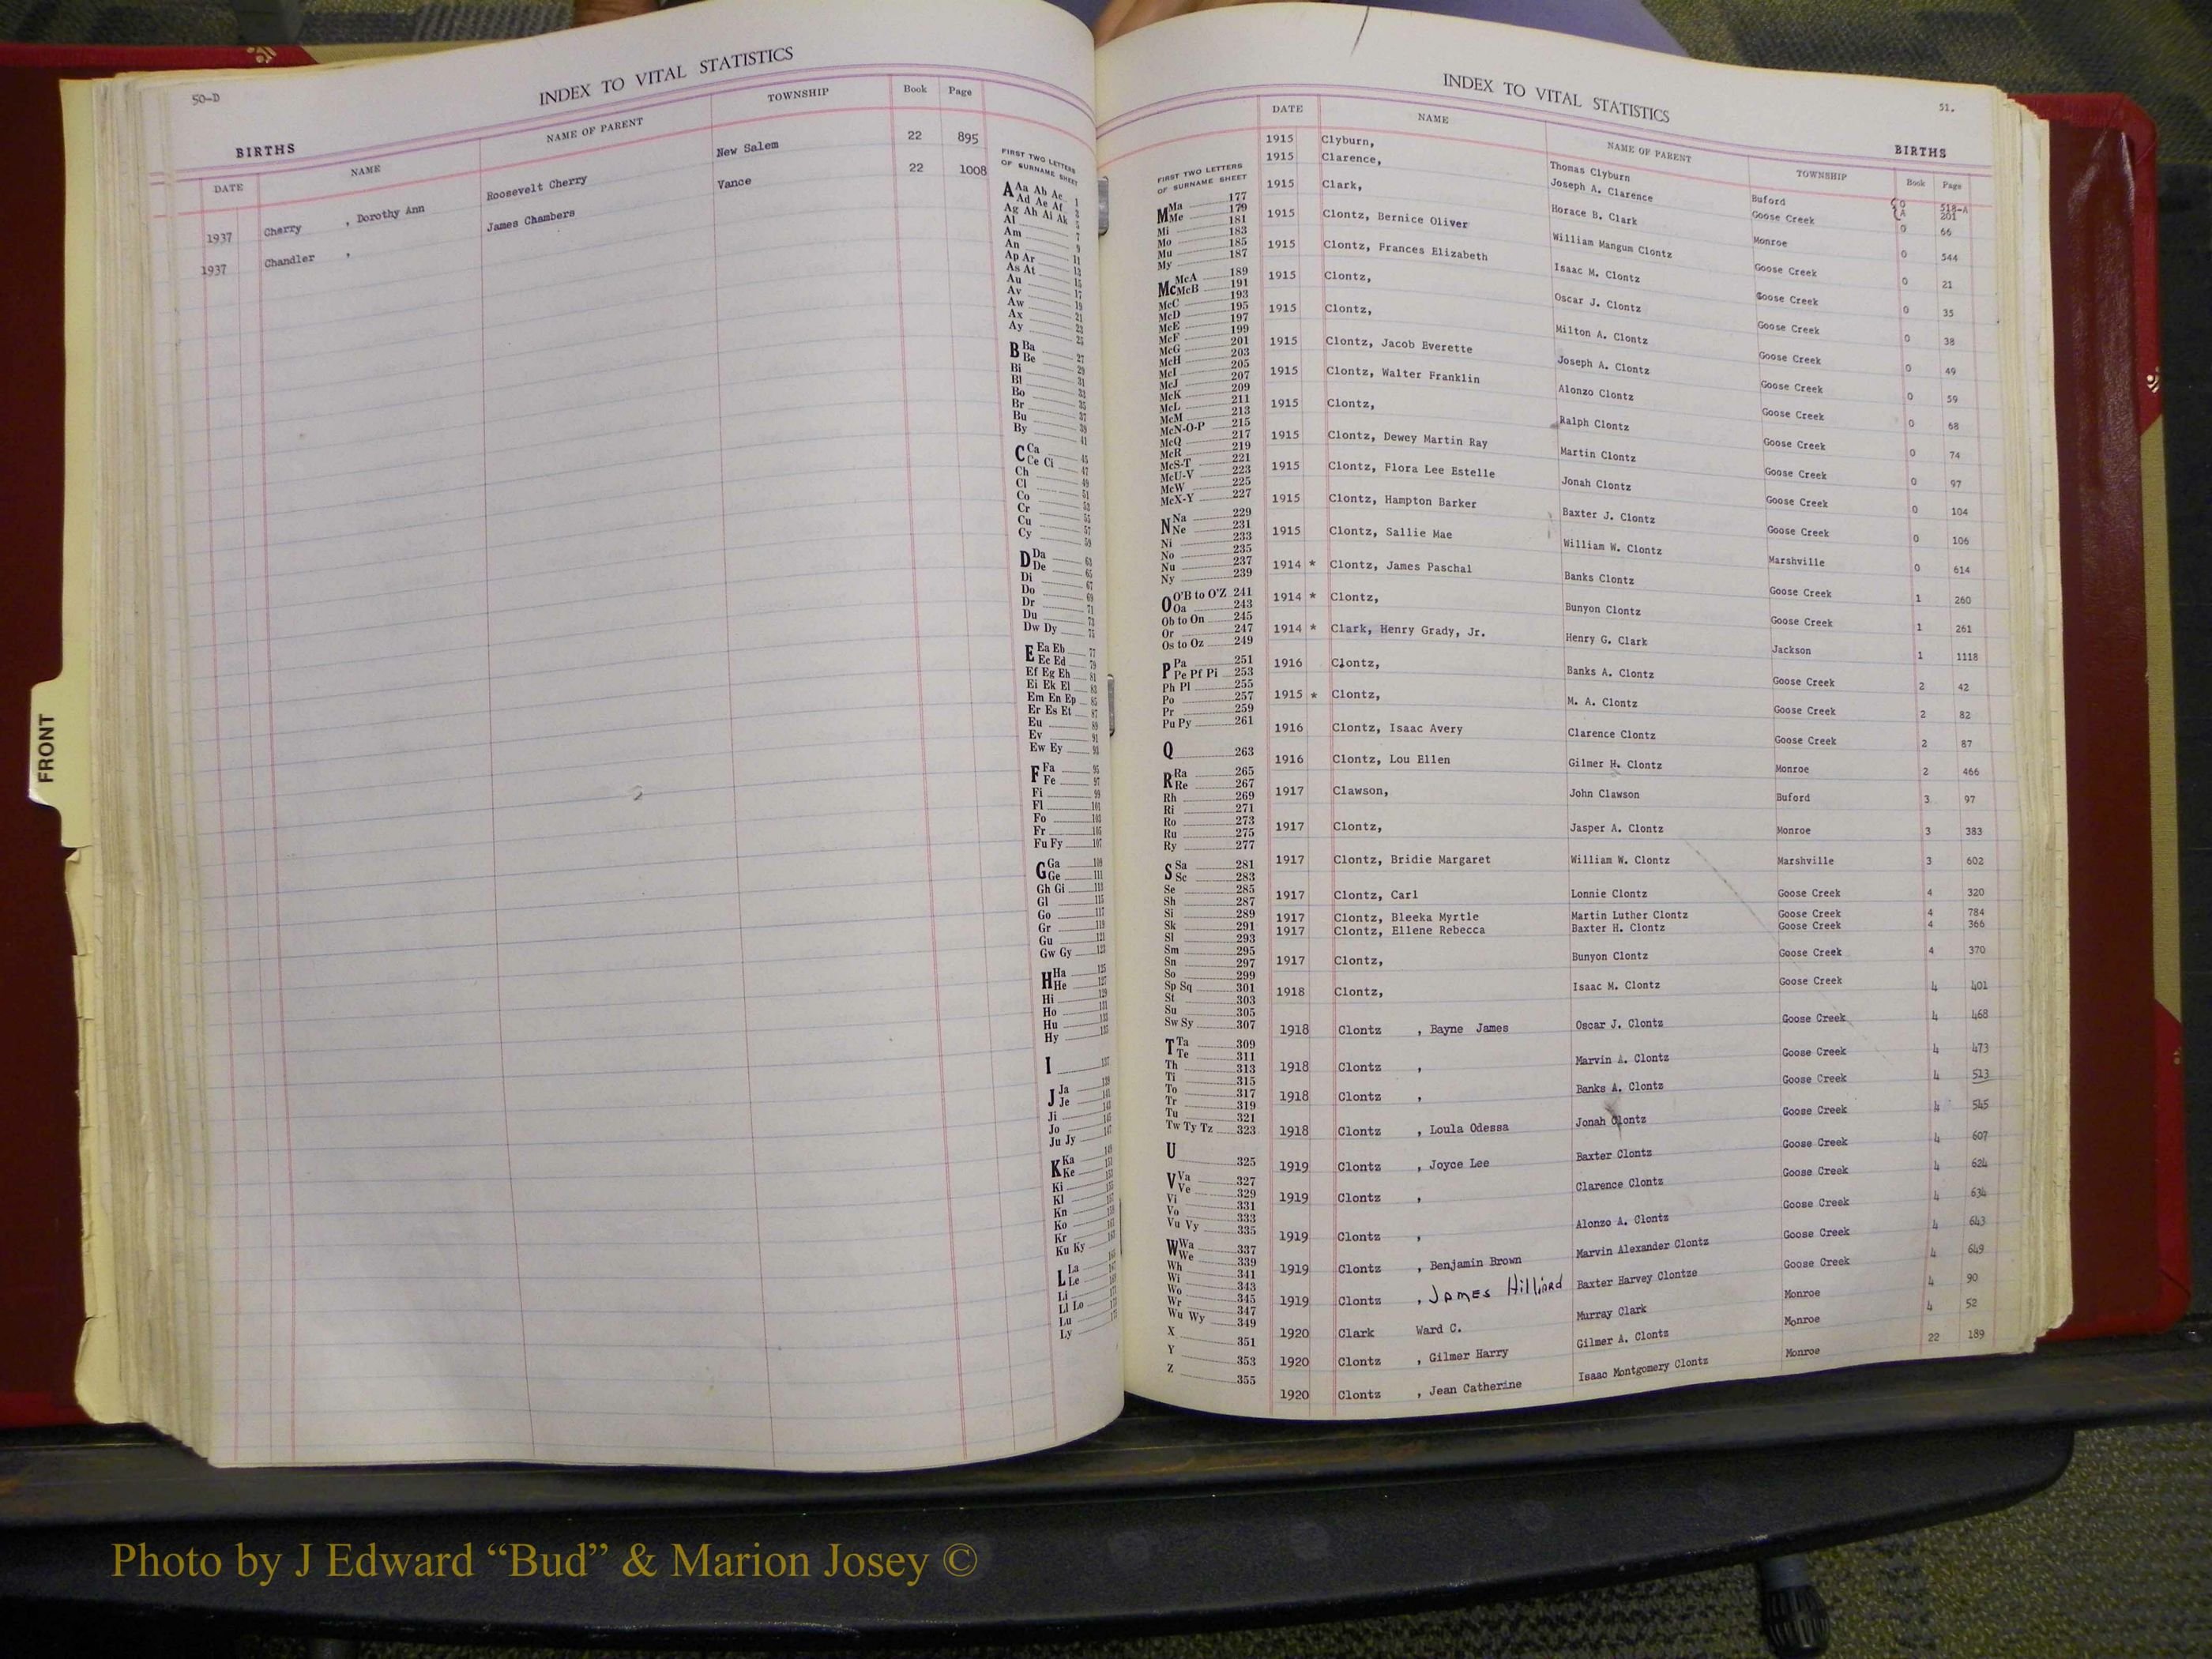 50-D
INDEX TO VITAL STATISTICS
BIRTHS
DATE NAME NAME OF PARENT TOWNSHIP Book Page
1937 Cherry , Dorothy Ann Roosevelt Cherry New Salem 22 895
1937 Chandler , James Chambers Vance 22 1008
FIRST TWO LETTERS
OF SURNAME SHEET
A Aa Ab Ac 1
Ad Ae Af 3
Ag Ah Ai Ak 5
Al 7
Am 9
An 11
Ap Ar 13
As At 15
Au 17
Av 19
Aw 21
Ax 23
Ay 25
B Ba 27
Be 29
Bi 31
Bl 33
Bo 35
Br 37
Bu 39
By 41
C Ca 45
Ce Ci 47
Ch 49
Cl 51
Co 53
Cr 55
Cu 57
Cy 59
D Da 63
De 65
Di 67
Do 69
Dr 71
Du 73
Dw Dy 75
E Ea Eb 77
Ec Ed 79
Ef Eg Eh 81
Ei Ek El 83
Em En Ep 85
Er Es Et 87
Eu 89
Ev 91
Ew Ey 93
F Fa 95
Fe 97
Fi 99
Fl 101
Fo 103
Fr 105
Fu Fy 107
G Ga 109
Ge 111
Gh Gi 113
Gl 115
Go 117
Gr 119
Gu 121
Gw Gy 123
H Ha 125
He 127
Hi 129
Ho 131
Hu 133
Hy 135
I 137
J Ja 139
Je 141
Ji 143
Jo 145
Ju Jy 147
K Ka 149
Ke 151
Ki
Kl
Kn
Ko
Kr
Ku Ky
L La
Le
Li
Ll Lo
Lu
Ly
FRONT
INDEX TO VITAL STATISTICS
51.
BIRTHS
DATE NAME NAME OF PARENT TOWNSHIP Book Page
FIRST TWO LETTERS
OF SURNAME SHEET
M Ma 177
Me 179
Mi 181
Mo 183
Mu 185
My 187
Mc McA 189
McB 191
McC 193
McD 195
McE 197
McF 199
McG 201
McH 203
McI 205
McJ 207
McK 209
McL 211
McM 213
McN-O-P 215
McQ 217
McR 219
McS-T 221
McU-V 223
McW 225
McX-Y 227
N Na 229
Ne 231
Ni 233
No 235
Nu 237
Ny 239
O O'B to O'Z 241
Oa 243
Ob to On 245
Or 247
Os to Oz 249
P Pa 251
Pe Pf Pi 253
Ph Pl 255
Po 257
Pr 259
Pu Py 261
Q 263
R Ra 265
Re 267
Rh 269
Ri 271
Ro 273
Ru 275
Ry 277
S Sa 281
Sc 283
Se 285
Sh 287
Si 289
Sk 291
Sl 293
Sm 295
Sn 297
So 299
Sp Sq 301
St 303
Su 305
Sw Sy 307
T Ta 309
Te 311
Th 313
Ti 315
To 317
Tr 319
Tu 321
Tw Ty Tz 323
U 325
V Va 327
Ve 329
Vi 331
Vo 333
Vu Vy 335
W Wa 337
We 339
Wh 341
Wi 343
Wo 345
Wr 347
Wu Wy 349
X 351
Y 353
Z 355
1915 Clyburn, Thomas Clyburn Buford 0 518-A
1915 Clarence, Joseph A. Clarence Goose Creek A 201
1915 Clark, Horace B. Clark Monroe 0 66
1915 Clontz, Bernice Oliver William Mangum Clontz Goose Creek 0 544
1915 Clontz, Frances Elizabeth Isaac M. Clontz Goose Creek 0 21
1915 Clontz, Oscar J. Clontz Goose Creek 0 35
1915 Clontz, Milton A. Clontz Goose Creek 0 38
1915 Clontz, Jacob Everette Joseph A. Clontz Goose Creek 0 49
1915 Clontz, Walter Franklin Alonzo Clontz Goose Creek 0 59
1915 Clontz, Ralph Clontz Goose Creek 0 68
1915 Clontz, Dewey Martin Ray Martin Clontz Goose Creek 0 74
1915 Clontz, Flora Lee Estelle Jonah Clontz Goose Creek 0 97
1915 Clontz, Hampton Barker Baxter J. Clontz Goose Creek 0 104
1915 Clontz, Sallie Mae William W. Clontz Marshville 0 106
1914 * Clontz, James Paschal Banks Clontz Goose Creek 0 614
1914 * Clontz, Bunyon Clontz Goose Creek 1 260
1914 * Clark, Henry Grady, Jr. Henry G. Clark Jackson 1 261
1916 Clontz, Banks A. Clontz Goose Creek 1 1118
1915 * Clontz, M. A. Clontz Goose Creek 2 42
1916 Clontz, Isaac Avery Clarence Clontz Goose Creek 2 82
1916 Clontz, Lou Ellen Gilmer H. Clontz Monroe 2 87
1917 Clawson, John Clawson Buford 2 466
3 97
1917 Clontz, Jasper A. Clontz Monroe 3 383
1917 Clontz, Bridie Margaret William W. Clontz Marshville 3 602
1917 Clontz, Carl Lonnie Clontz Goose Creek 4 320
1917 Clontz, Bleeka Myrtle Martin Luther Clontz Goose Creek 4 784
1917 Clontz, Ellene Rebecca Baxter H. Clontz Goose Creek 4 366
1917 Clontz, Bunyon Clontz Goose Creek 4 370
1918 Clontz, Isaac M. Clontz Goose Creek 4 401
1918 Clontz , Bayne James Oscar J. Clontz Goose Creek 4 468
1918 Clontz , Marvin A. Clontz Goose Creek 4 473
1918 Clontz , Banks A. Clontz Goose Creek 4 513
1918 Clontz , Loula Odessa Jonah Clontz Goose Creek 4 545
1919 Clontz , Joyce Lee Baxter Clontz Goose Creek 4 607
1919 Clontz , Clarence Clontz Goose Creek 4 624
1919 Clontz , Alonzo A. Clontz Goose Creek 4 634
1919 Clontz , Benjamin Brown Marvin Alexander Clontz Goose Creek 4 643
1919 Clontz , JAMES Hilliard Baxter Harvey Clontze Goose Creek 4 649
1920 Clark Ward C. Murray Clark Monroe 4 90
1920 Clontz , Gilmer Harry Gilmer A. Clontz Monroe 4 52
1920 Clontz , Jean Catherine Isaac Montgomery Clontz Monroe 22 189
Photo by J Edward “Bud” & Marion Josey ©